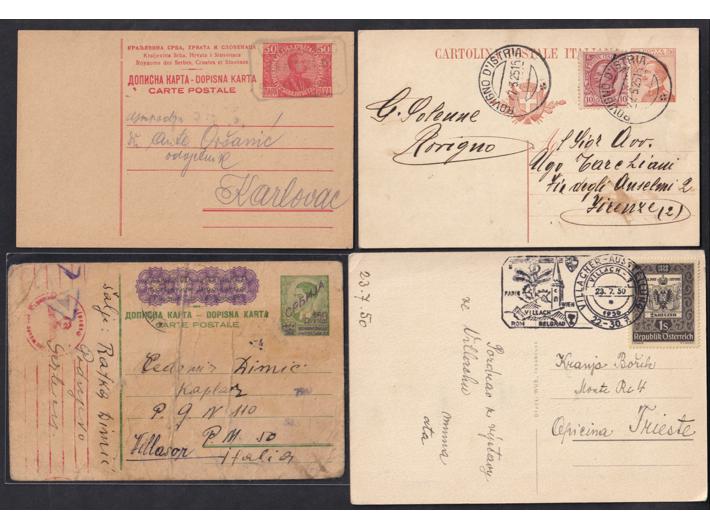 КРАЉЕВИНА СРБА, ХРВАТА И СЛОВЕНАЦА
Kraljevina Srba, Hrvata i Slovenaca
Royaume des Serbes, Croates et Slovènes
ДОПИСНА КАРТА - DOPISNA KARTA
CARTE POSTALE
50 50
Dr. Ante Oršanić
odvjetnik
Karlovac
CARTOLINA POSTALE ITALIANA
ROVIGNO D'ISTRIA
ROVIGNO D'ISTRIA
G. Solenne
Rovigno
Sigr Avv.
Ugo Tarchiani
Via degli Anselmi 2
Firenze (2)
СРБИЈА
ДОПИСНА КАРТА - DOPISNA KARTA
CARTE POSTALE
šalje: Ratka Dimić
Čedomir Dimić
P. G. N 110
Villasor P. M. 50
Italia
23.7.50
PARIS
WIEN
VILLACH
ROM BELGRAD
VILLACH
23.7.50
1950
22.-30.
1S
Republik Österreich
Pozdrav z
ze Villacha
mima
ata
Kranja Božih
Monte Re 4
Opicina Trieste